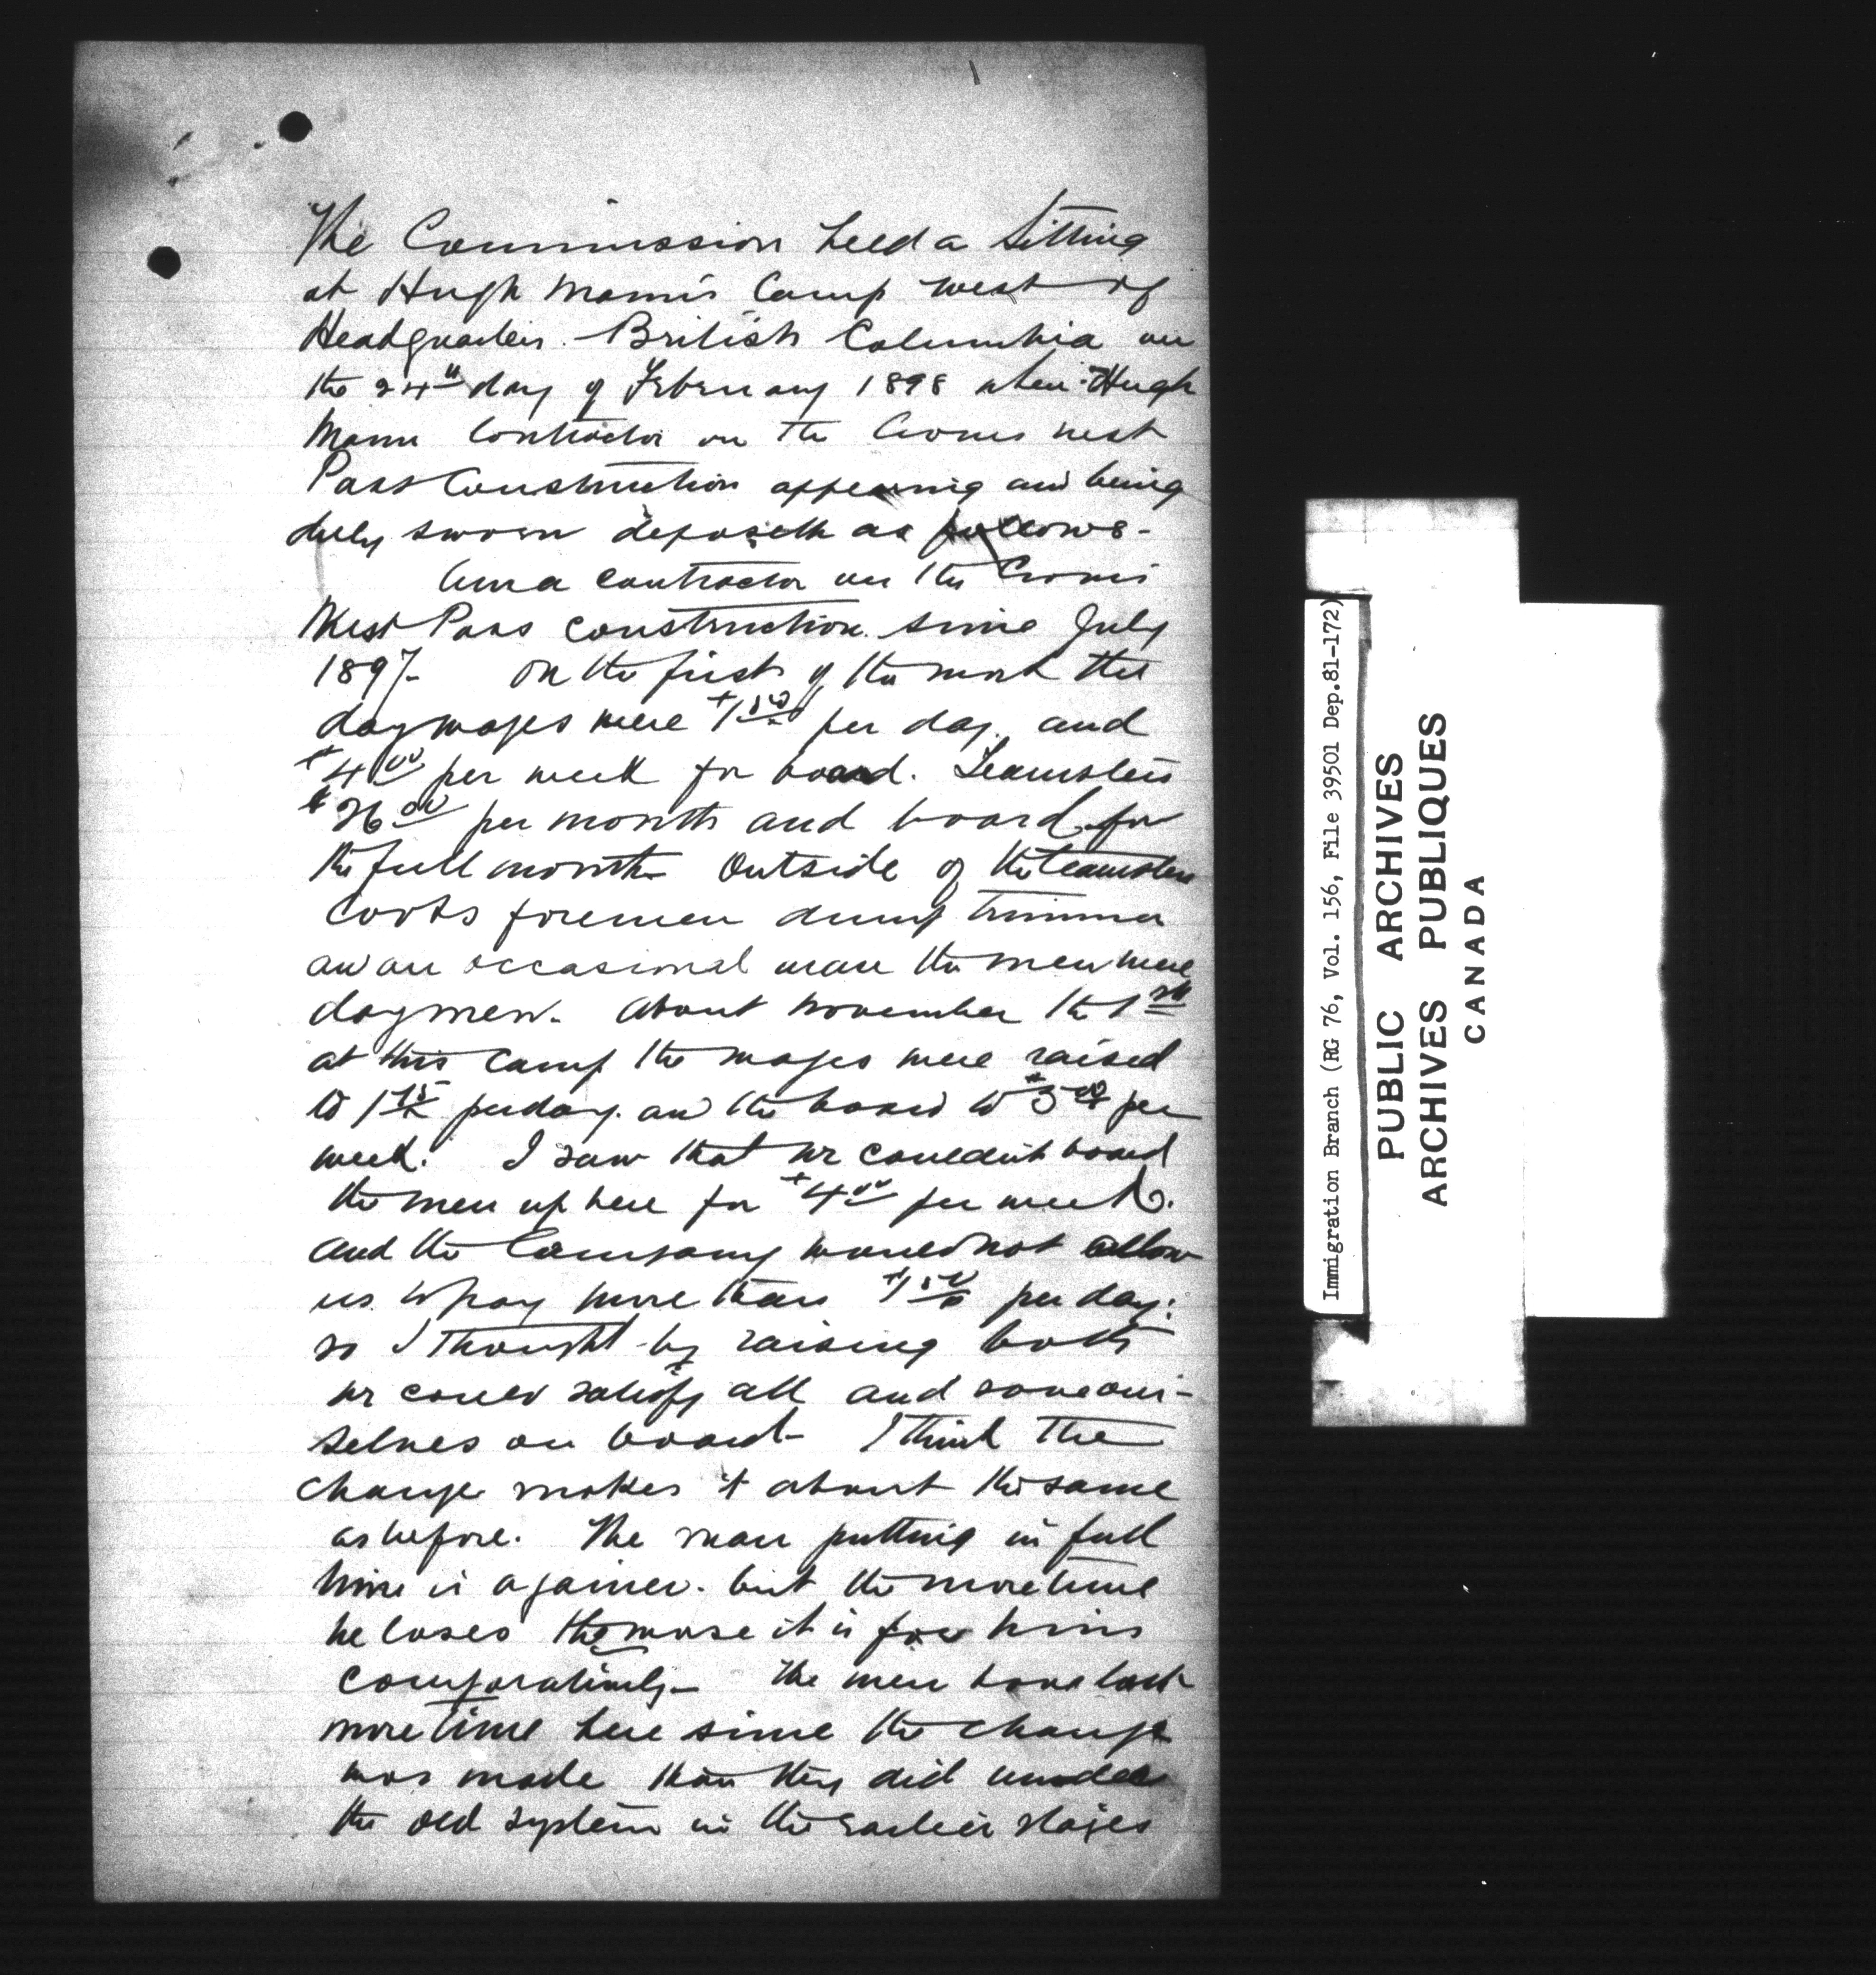 The Commission held a Sitting
at Hugh Mann's Camp west of
Headquarters. British Columbia on
the 24th day of February 1898 when Hugh
Mann Contractor on the Crows nest
Pass Construction appearing and being
duly sworn deposeth as follows-
Am a contractor on the Crows
Nest Pass construction. since July
1897- On the first of the work the
day wages were $1.50 per day. and
$4.00 per week for board. Teamsters
$26.00 per month and board for
the full month- Outside of the teamsters
Cooks foremen dump trimmer
and an occasional man the men were
daymen. About November the 1st
at this camp the wages were raised
to 1.75 per day. and the board to $5.00 per
week. I saw that we couldn't board
the men up here for $4.00 per week.
and the Company would not allow
us to pay more than $1.50 per day:
so I thought by raising both
we could satisfy all and save our-
selves on board- I think the
change makes it about the same
as before. The man putting in full
time is a gainer. but the more time
he loses the worse it is for him
comparatively- The men have lost
more time here since the change
was made than they did under
the old system in the earlier stages
Immigration Branch (RG 76, Vol. 156, File 39501 Dep.81-172)
PUBLIC ARCHIVES
ARCHIVES PUBLIQUES
CANADA